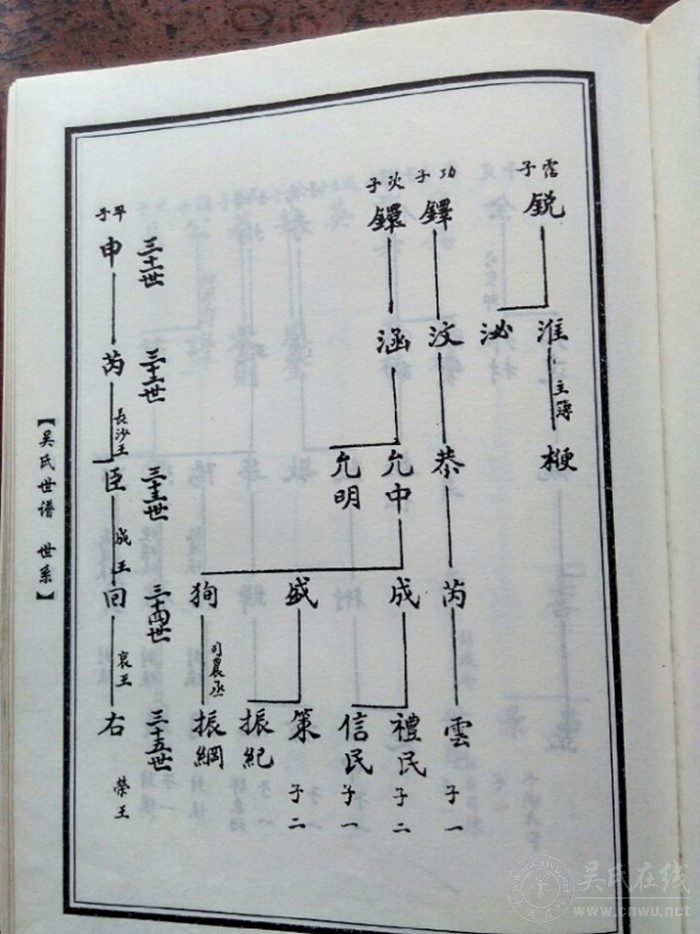 霑子
銳
淮 主簿
泌
梗
功子
鐸
汶
恭
芮
雲 子一
次子
鐶
涵
允中
允明
成
盛
狗 司農丞
禮民 子二
信民 子一
策 子二
振紀
振綱
三十一世
三十二世
三十三世
三十四世
三十五世
平子
申
芮 長沙王
臣 成王
回 哀王
右 榮王
【吴氏世谱 世系】
吴氏在线
www.cnwu.net